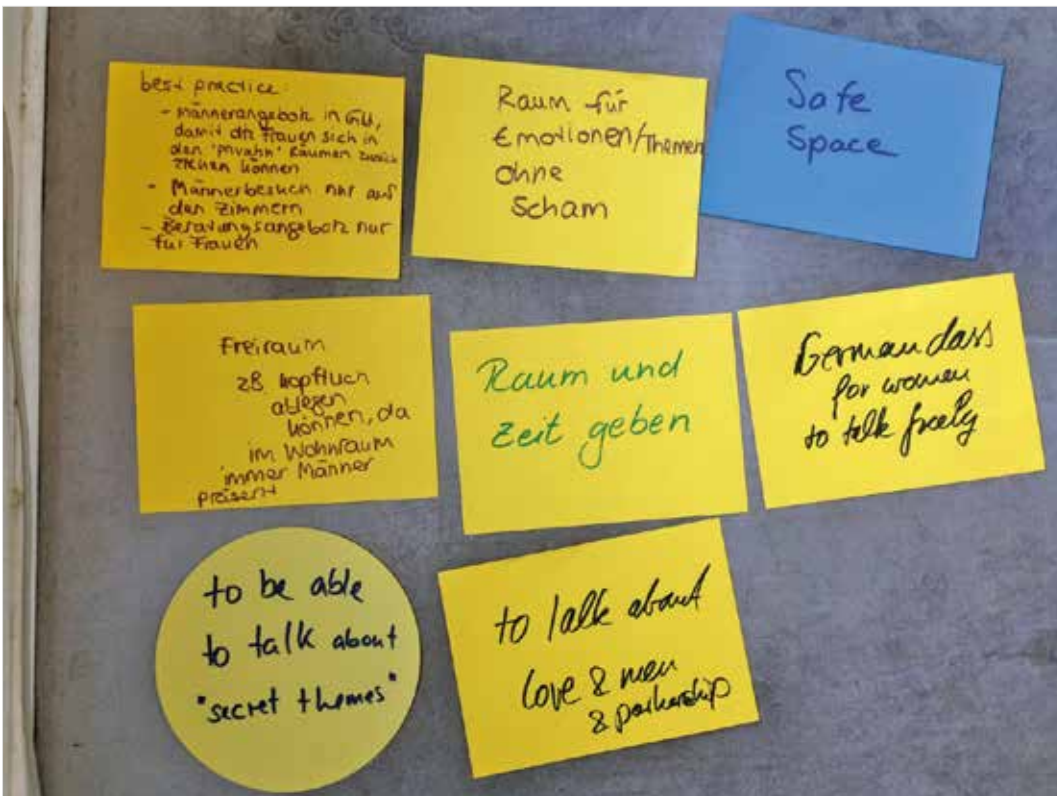 best practice:
- Männerangebote in GU,
damit die Frauen sich in
den "privaten" Räumen zurück
ziehen können
- Männerbesuch nur auf
den Zimmern
- Beratungsangebote nur
für Frauen
Raum für
Emotionen/Themen
ohne
Scham
Safe
Space
Freiraum
zB Kopftuch
ablegen
können, da
im Wohnraum
immer Männer
präsent
Raum und
Zeit geben
German class
for women
to talk freely
to be able
to talk about
"secret themes"
to talk about
love & men
& partnership